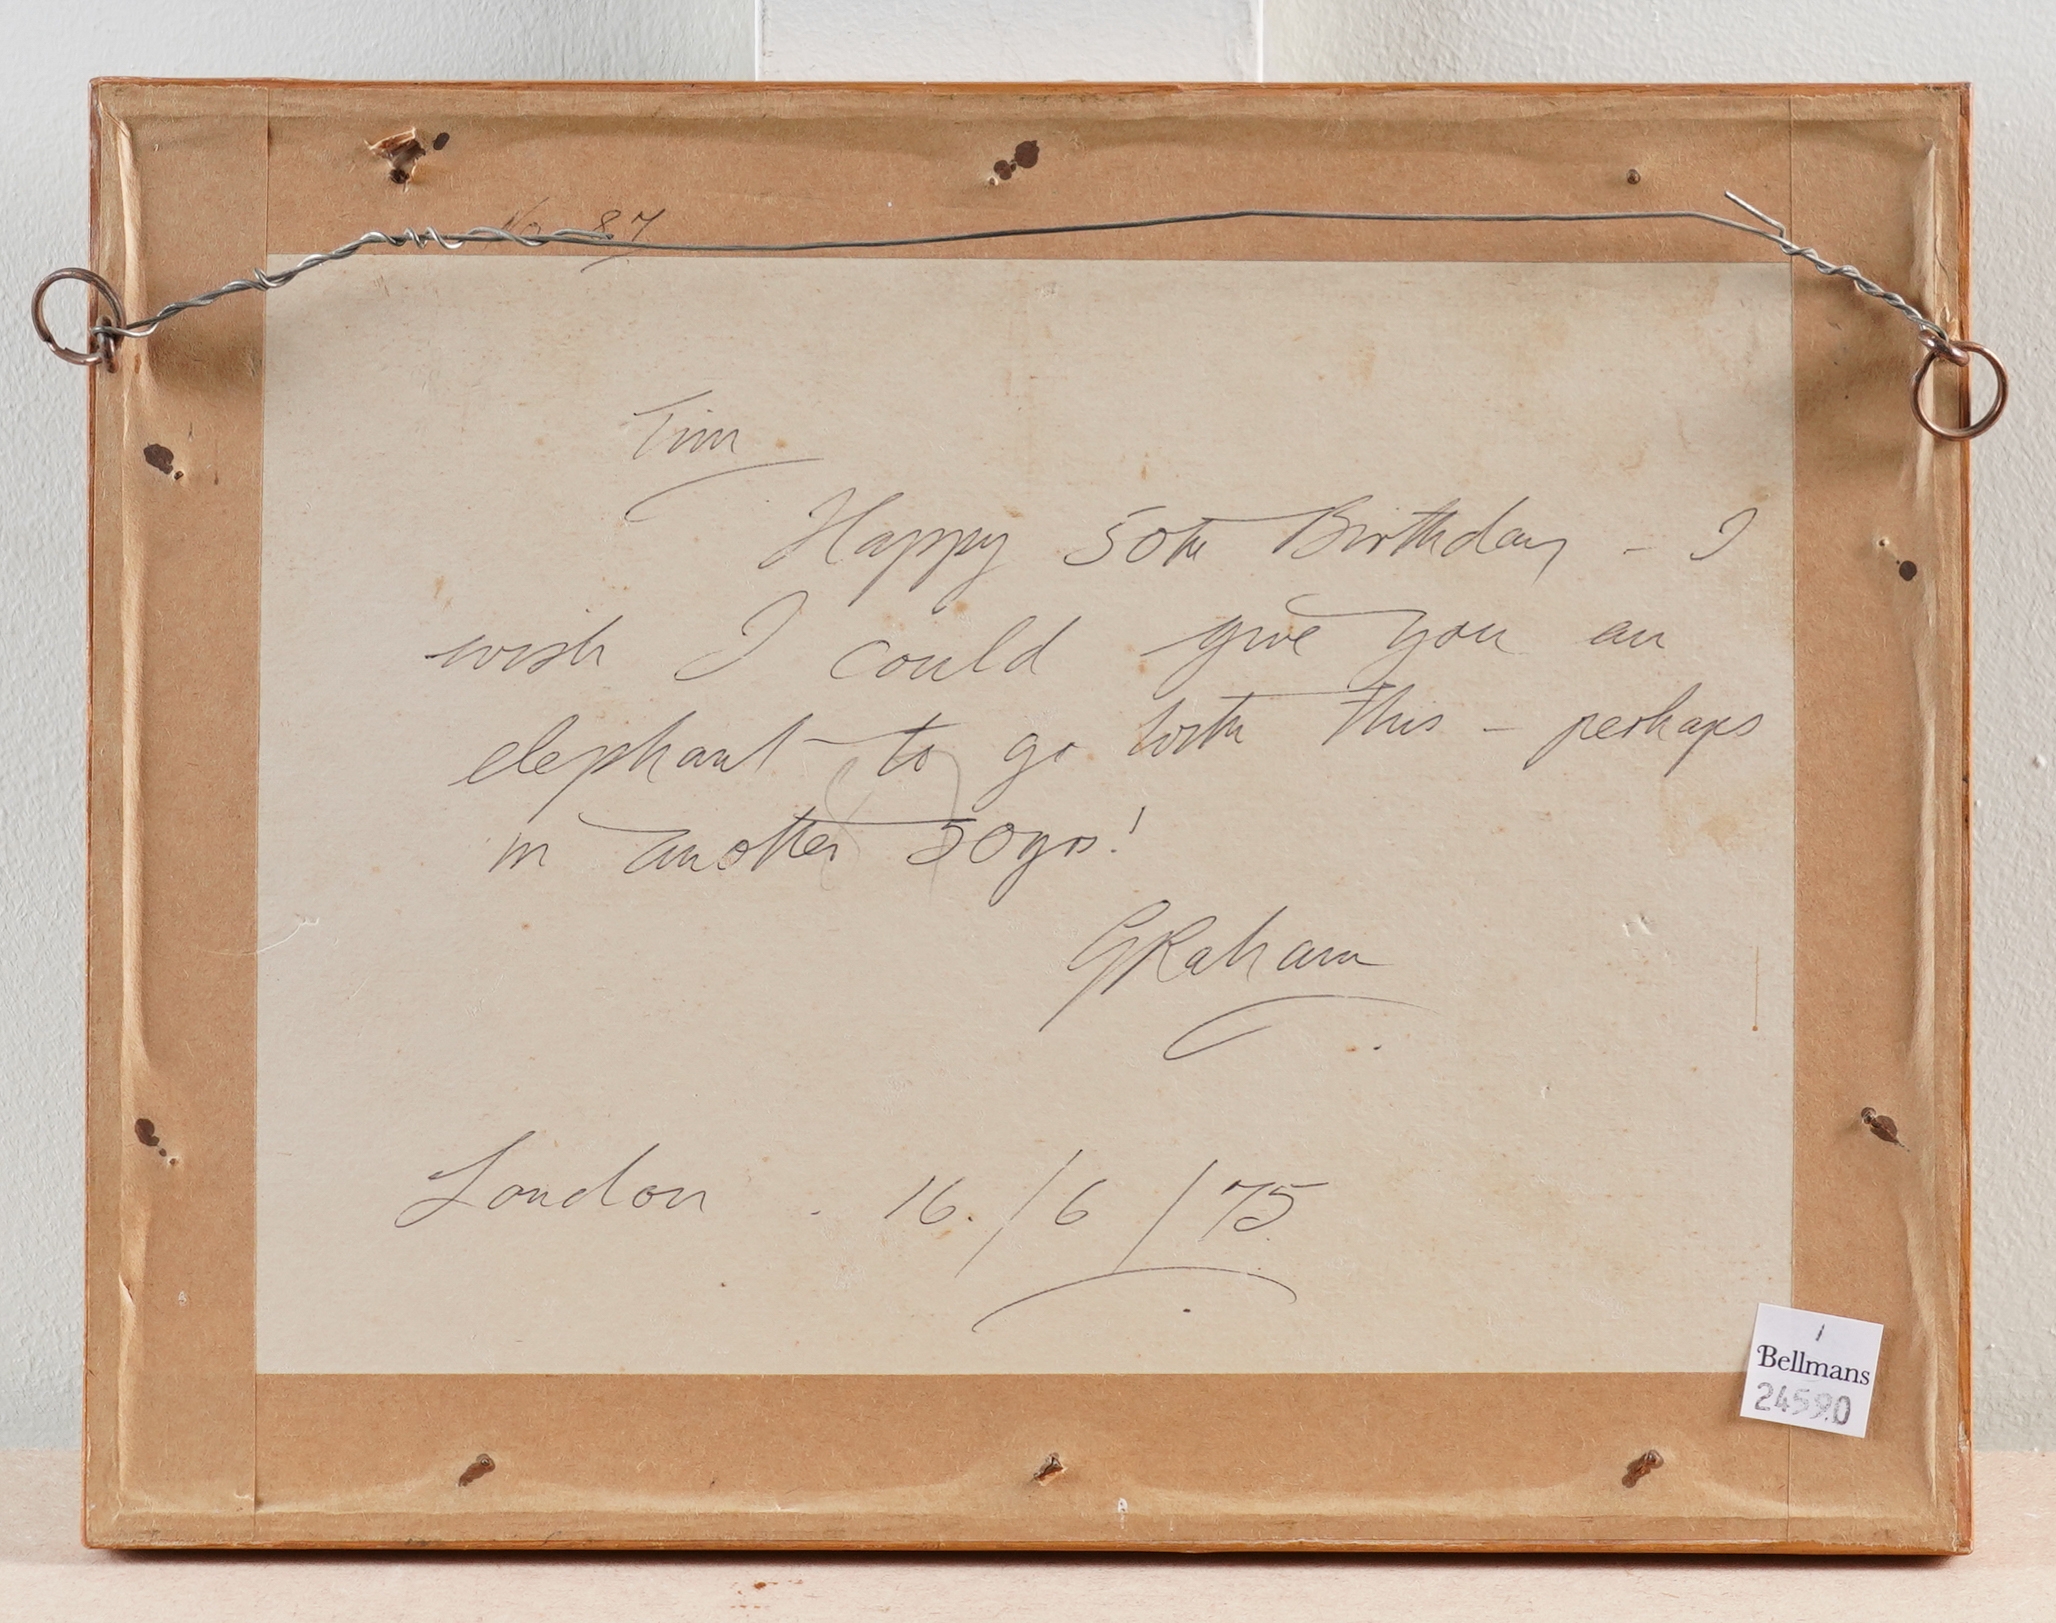 No 87
Tim
Happy 50th Birthday - I
wish I could give you an
elephant to go with this - perhaps
in another 50yrs!
GRaham
London . 16./6/75
1
Bellmans
24590